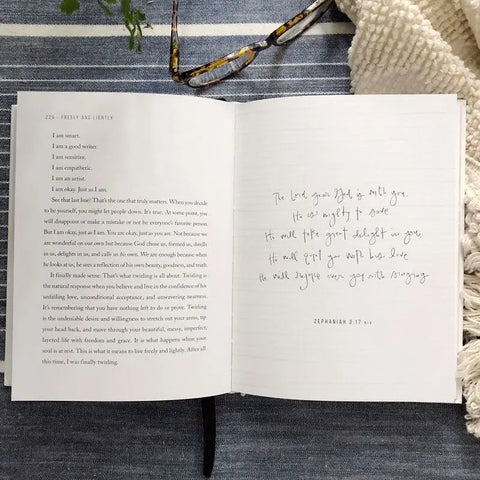 226 - FREELY AND LIGHTLY
I am smart.
I am a good writer.
I am sensitive.
I am empathetic.
I am an artist.
I am okay. Just as I am.
See that last line? That's the one that truly matters. When you decide
to be yourself, you might let people down. It's true. At some point, you
will disappoint or make a mistake or not be everyone's favorite person.
But I am okay, just as I am. You are okay, just as you are. Not because we are
wonderful on our own but because God chose us, formed us, dwells
in us, delights in us, and calls us his own. We are enough because when
he looks at us, he sees a reflection of his own beauty, goodness, and truth.
It finally made sense. That's what twirling is all about. Twirling is
the natural response when you believe and live in the confidence of his
unfailing love, unconditional acceptance, and unwavering nearness.
It's remembering that you have nothing left to do or prove. Twirling
is the undeniable desire and willingness to stretch out your arms, tip
your head back, and move through your beautiful, messy, imperfect,
layered life with freedom and grace. It is what happens when your
soul is at rest. This is what it means to live freely and lightly. After all
this time, I was finally twirling.
The Lord your God is with you.
He is mighty to save
He will take great delight in you,
He will quiet you with his love
He will rejoice over you with singing
ZEPHANIAH 3:17 NIV